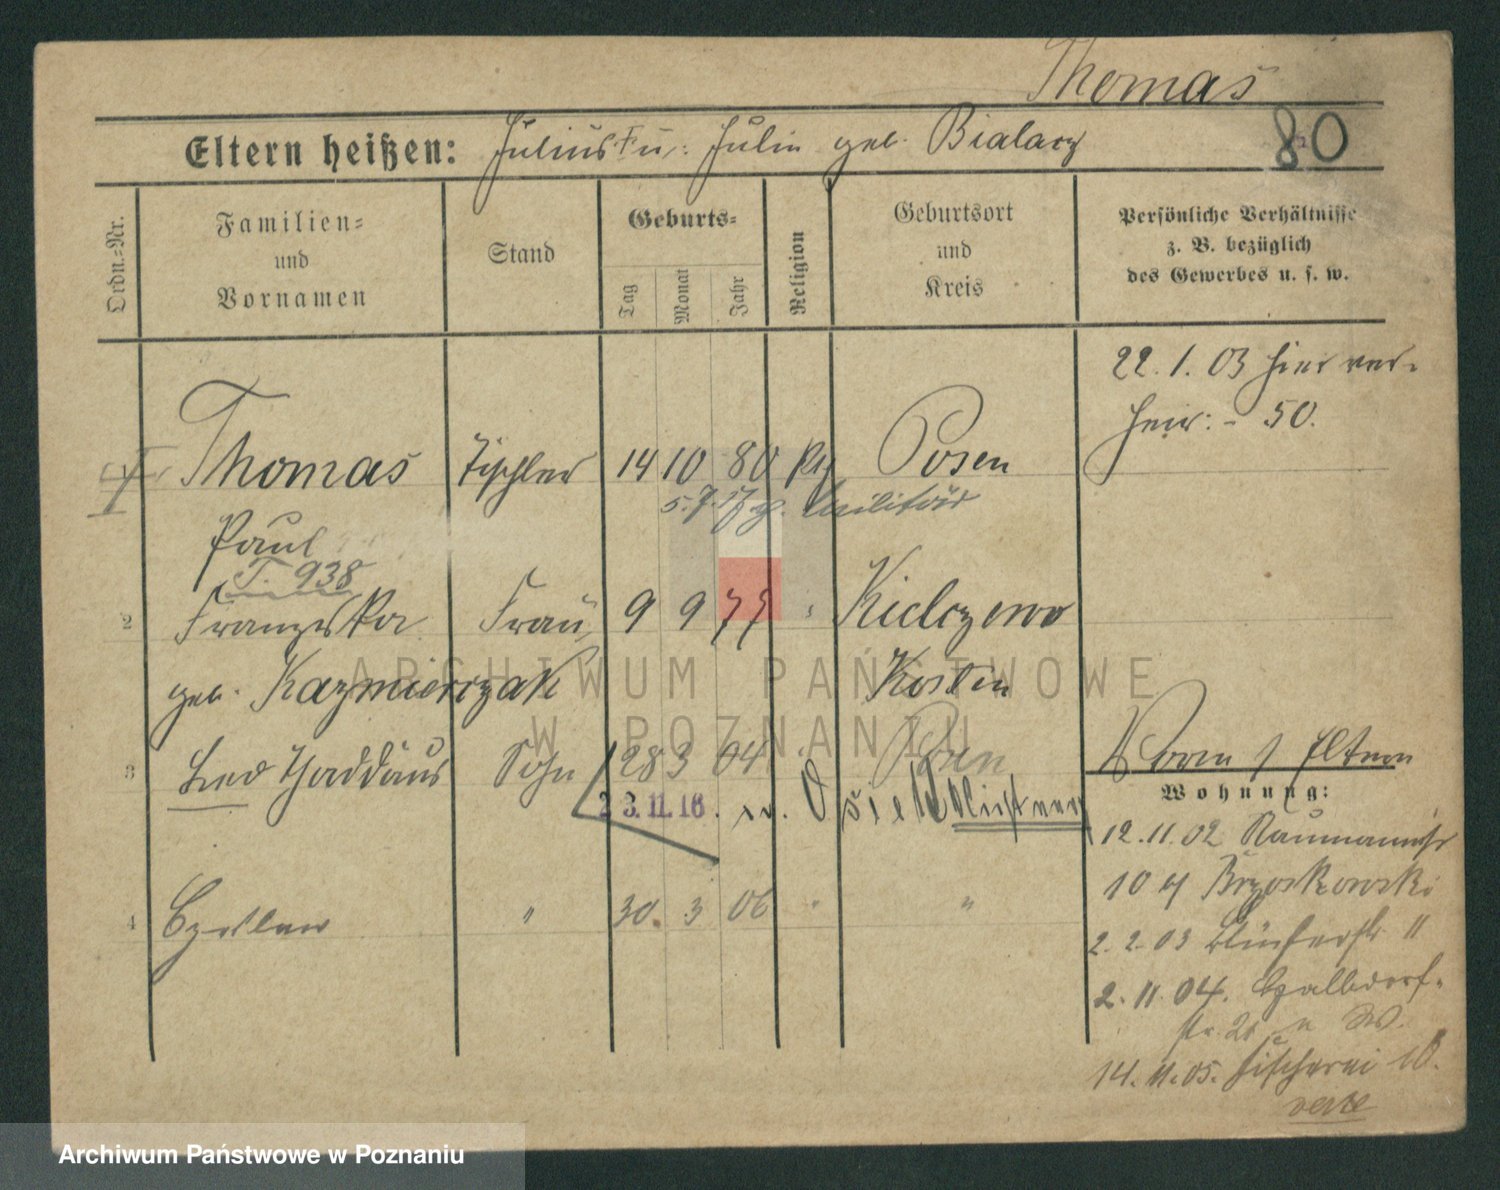 Thomas
Eltern heißen: Julius u. Julie geb. Bialacz 80
Ordn.=Nr.
Familien=
und
Vornamen
Stand
Geburts=
Tag Monat Jahr
Religion
Geburtsort
und
Kreis
Persönliche Verhältnisse
z. B. bezüglich
des Gewerbes u. s. w.
22. 1. 03 hier ver-
heir: - 50.
Thomas Tischler 14 10 80 Posen
5. 7. 17 Militär
Paul
T. 938
2 Franziska Frau 9 9 77 Kielczewo
geb. Kazmierczak Kosten
3 Leo Thaddäus Sohn 28 3 04 Posen
23.11.16.
4 Czeslaw " 30. 3 06 " "
Vorn / Eltern
Wohnung:
12.11.02 Naumannstr
10 Brzoskowski
2. 2. 03 11
2. 11. 04.
14. 11. 05. Fischerei 10.
verte
ARCHIWUM PAŃSTWOWE
W POZNANIU
Archiwum Państwowe w Poznaniu